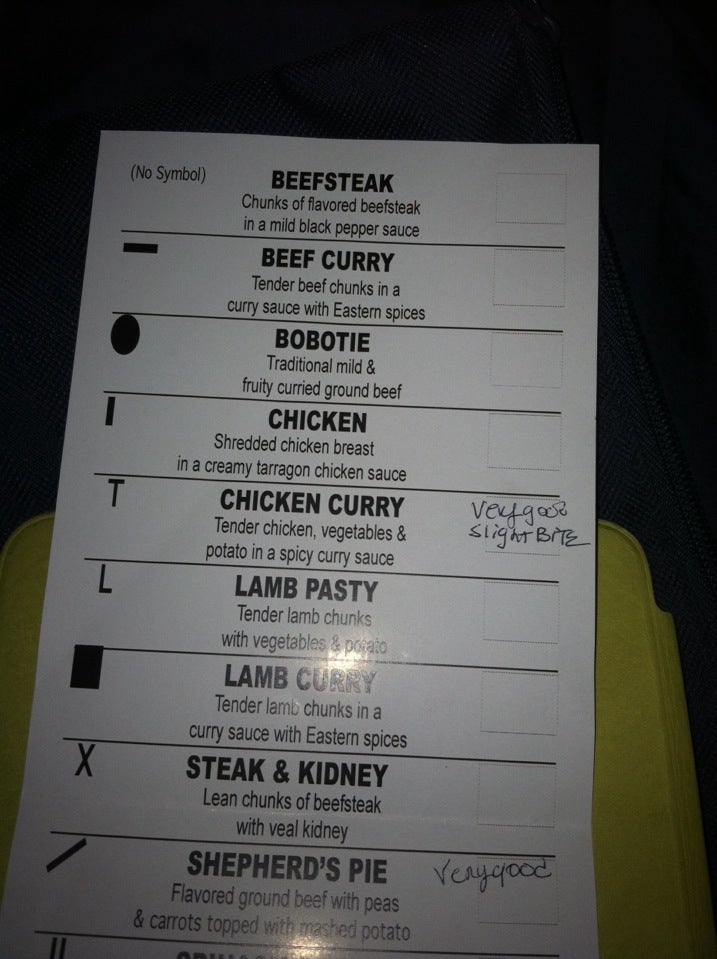 (No Symbol)
BEEFSTEAK
Chunks of flavored beefsteak
in a mild black pepper sauce
BEEF CURRY
Tender beef chunks in a
curry sauce with Eastern spices
BOBOTIE
Traditional mild &
fruity curried ground beef
CHICKEN
Shredded chicken breast
in a creamy tarragon chicken sauce
T
CHICKEN CURRY
Tender chicken, vegetables &
potato in a spicy curry sauce
Very good
slight BITE
L
LAMB PASTY
Tender lamb chunks
with vegetables & potato
LAMB CURRY
Tender lamb chunks in a
curry sauce with Eastern spices
X
STEAK & KIDNEY
Lean chunks of beefsteak
with veal kidney
SHEPHERD'S PIE
Very good
Flavored ground beef with peas
& carrots topped with mashed potato